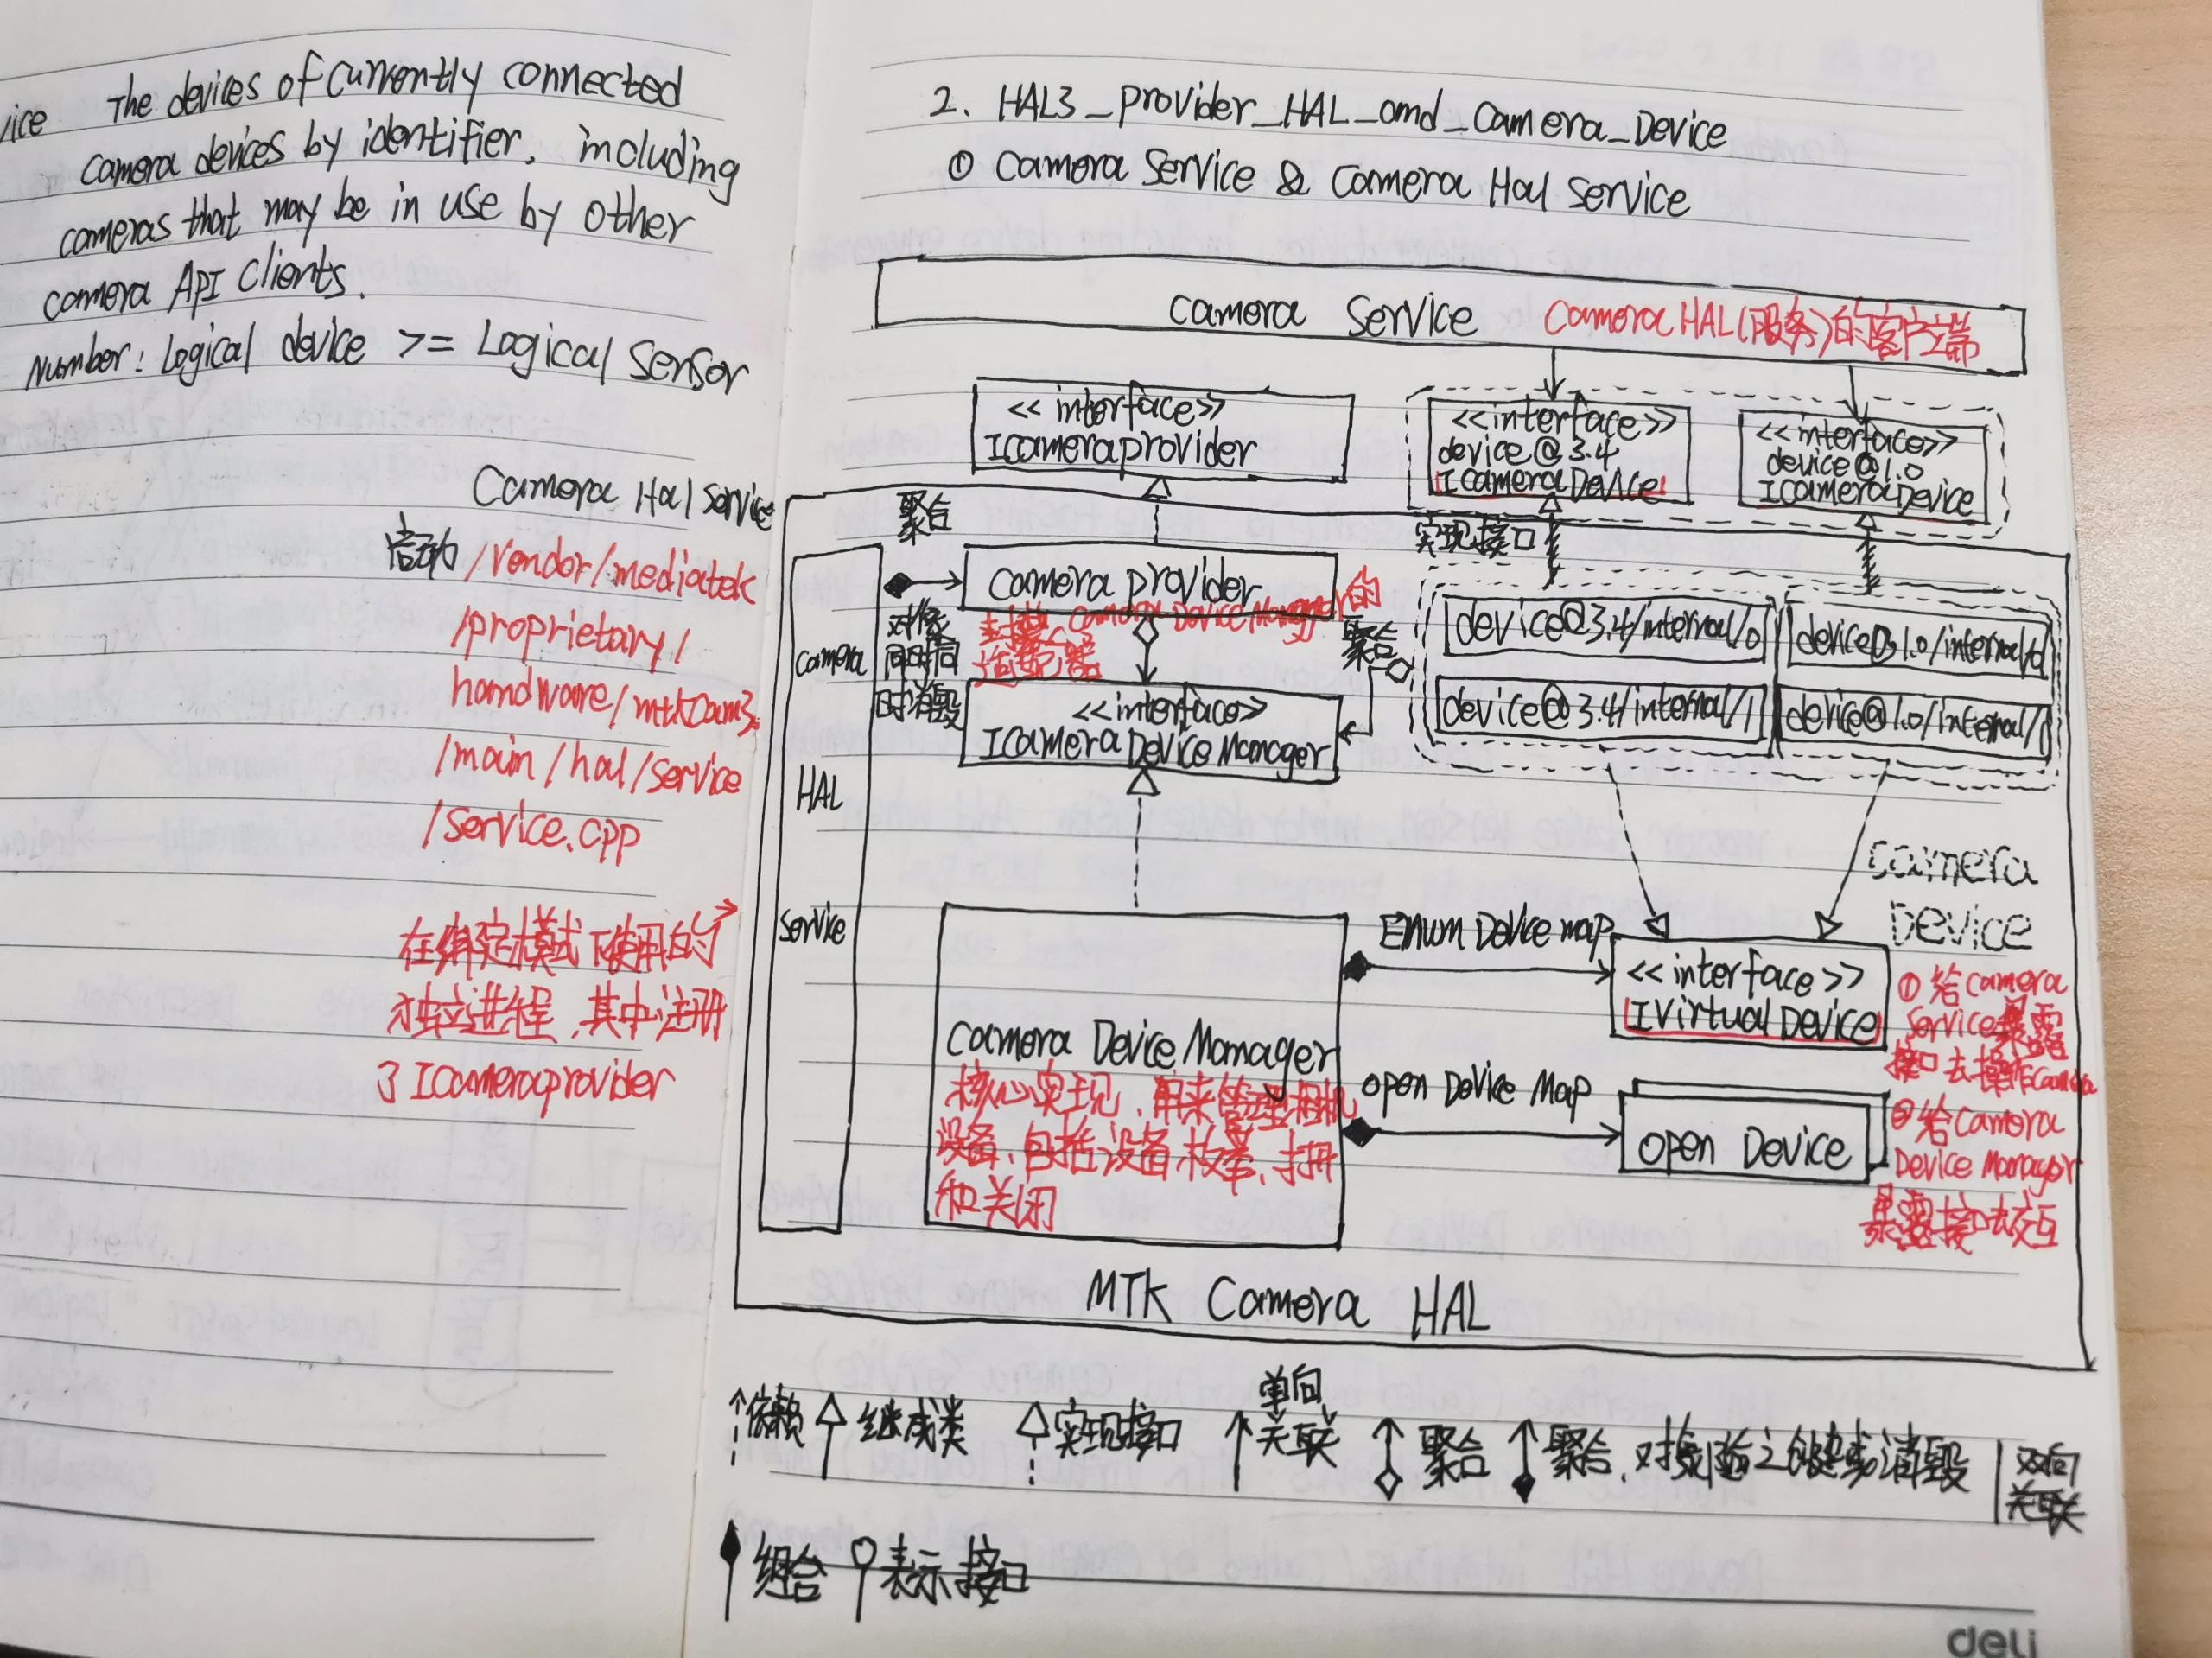 The devices of currently connected
camera devices by identifier, including
cameras that may be in use by other
camera API clients.
Number: Logical device >= Logical Sensor
Camera Hal service
启动 /vendor/mediatek
/proprietary/
hardware/mtkcam3
/main/hal/service
/service.cpp
在绑定模式下使用的
独立进程,其中注册
了 ICameraprovider
2. HAL3_provider_HAL_and_Camera_Device
① Camera Service & Camera Hal Service
Camera Service Camera HAL(服务)的客户端
<<interface>>
ICameraprovider
<<interface>>
device@3.4
ICameraDevice
<<interface>>
device@1.0
ICameraDevice
聚合
实现接口
Camera provider
封装 Camera Device Manager的
适配器
对像
同时
时消毁
聚合
Camera
HAL
Service
<<interface>>
ICameraDeviceManager
device@3.4/internal/0
device@1.0/internal/0
device@3.4/internal/1
device@1.0/internal/1
Camera
Device
Enum Device map
<<interface>>
IVirtualDevice
Camera Device Manager
核心实现,用来管理相机
设备,包括设备枚举,打开
和关闭
Open Device Map
Open Device
①给Camera
Service暴露
接口去操作Camera
②给Camera
Device Manager
暴露接口去交互
MTK Camera HAL
依赖 继成类 实现接口 单向关联 聚合 聚合,对象 消毁 双向关联
组合 表示接口
deli